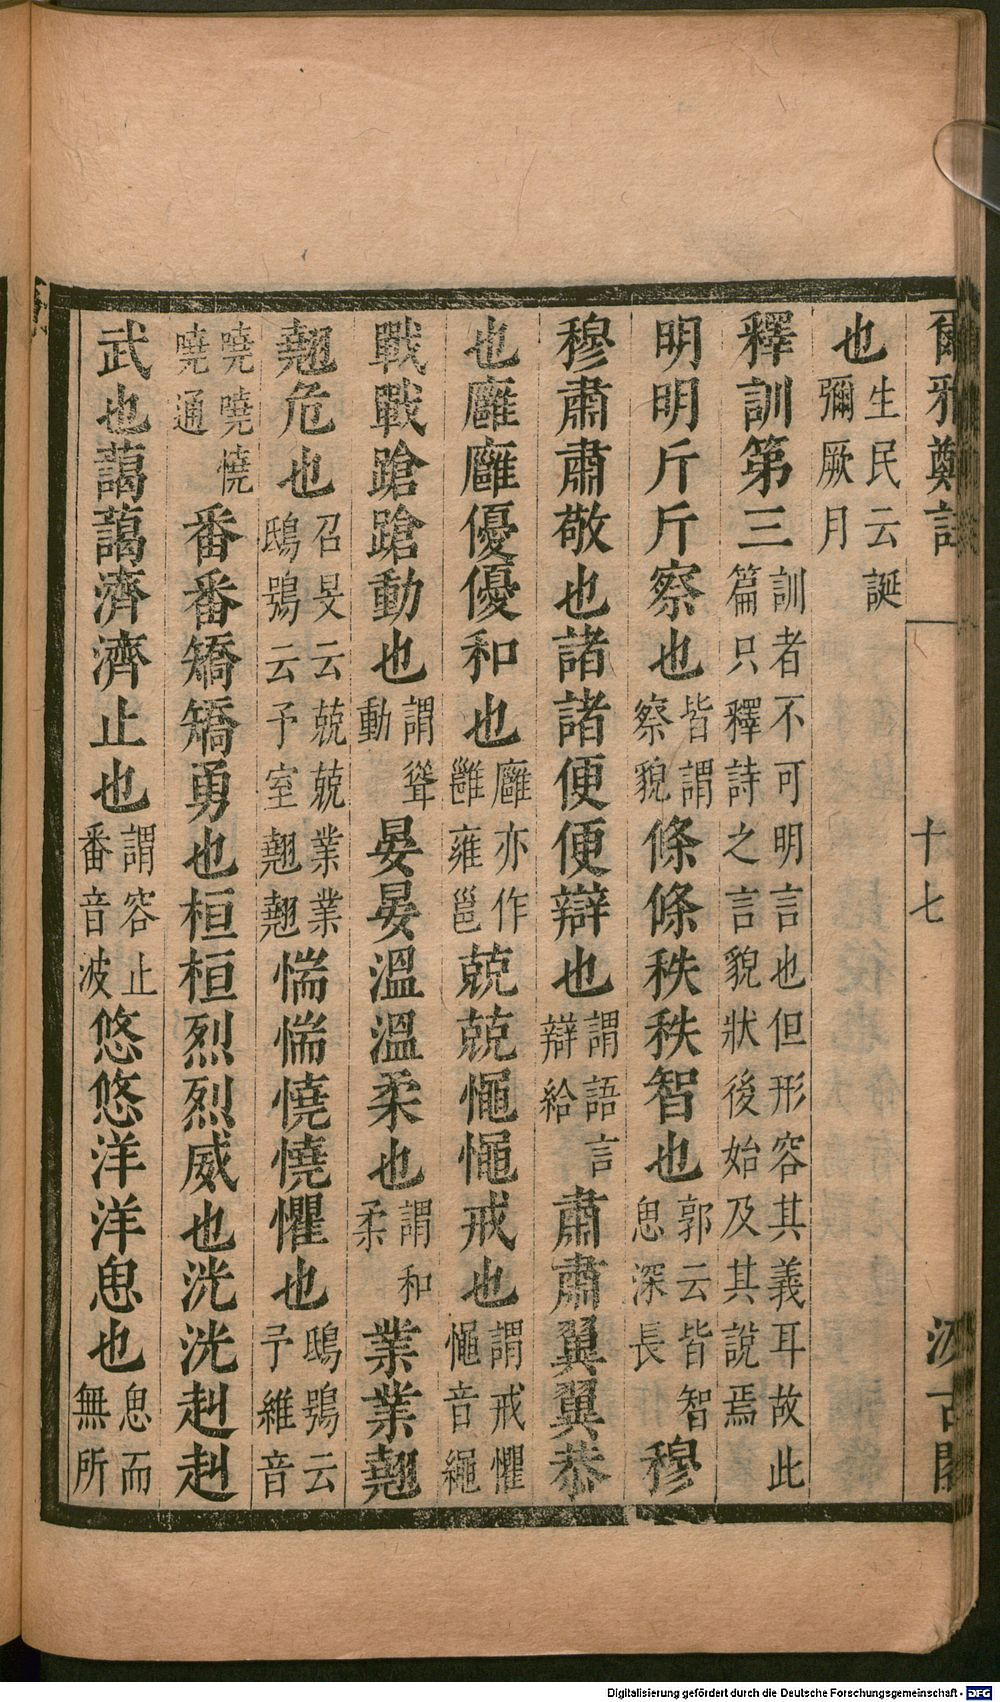 爾雅鄭註 十七 汲古閣
也生民云誕彌厥月
釋訓第三訓者不可明言也但形容其義耳故此篇只釋詩之言貌狀後始及其說焉
明明斤斤察也皆謂察貌條條秩秩智也郭云皆智思深長穆
穆肅肅敬也諸諸便便辯也謂語言辯給肅肅翼翼恭
也廱廱優優和也廱亦作雝雍邕兢兢憴憴戒也謂戒懼憴音繩
戰戰蹌蹌動也謂聳動晏晏溫溫柔也謂和柔業業翹
翹危也召旻云兢兢業業鴟鴞云予室翹翹惴惴憢憢懼也鴟鴞云予維音
嘵嘵憢嘵通番番矯矯勇也桓桓烈烈威也洸洸赳赳
武也藹藹濟濟止也謂容止番音波悠悠洋洋思也思而無所
Digitalisierung gefördert durch die Deutsche Forschungsgemeinschaft - DFG